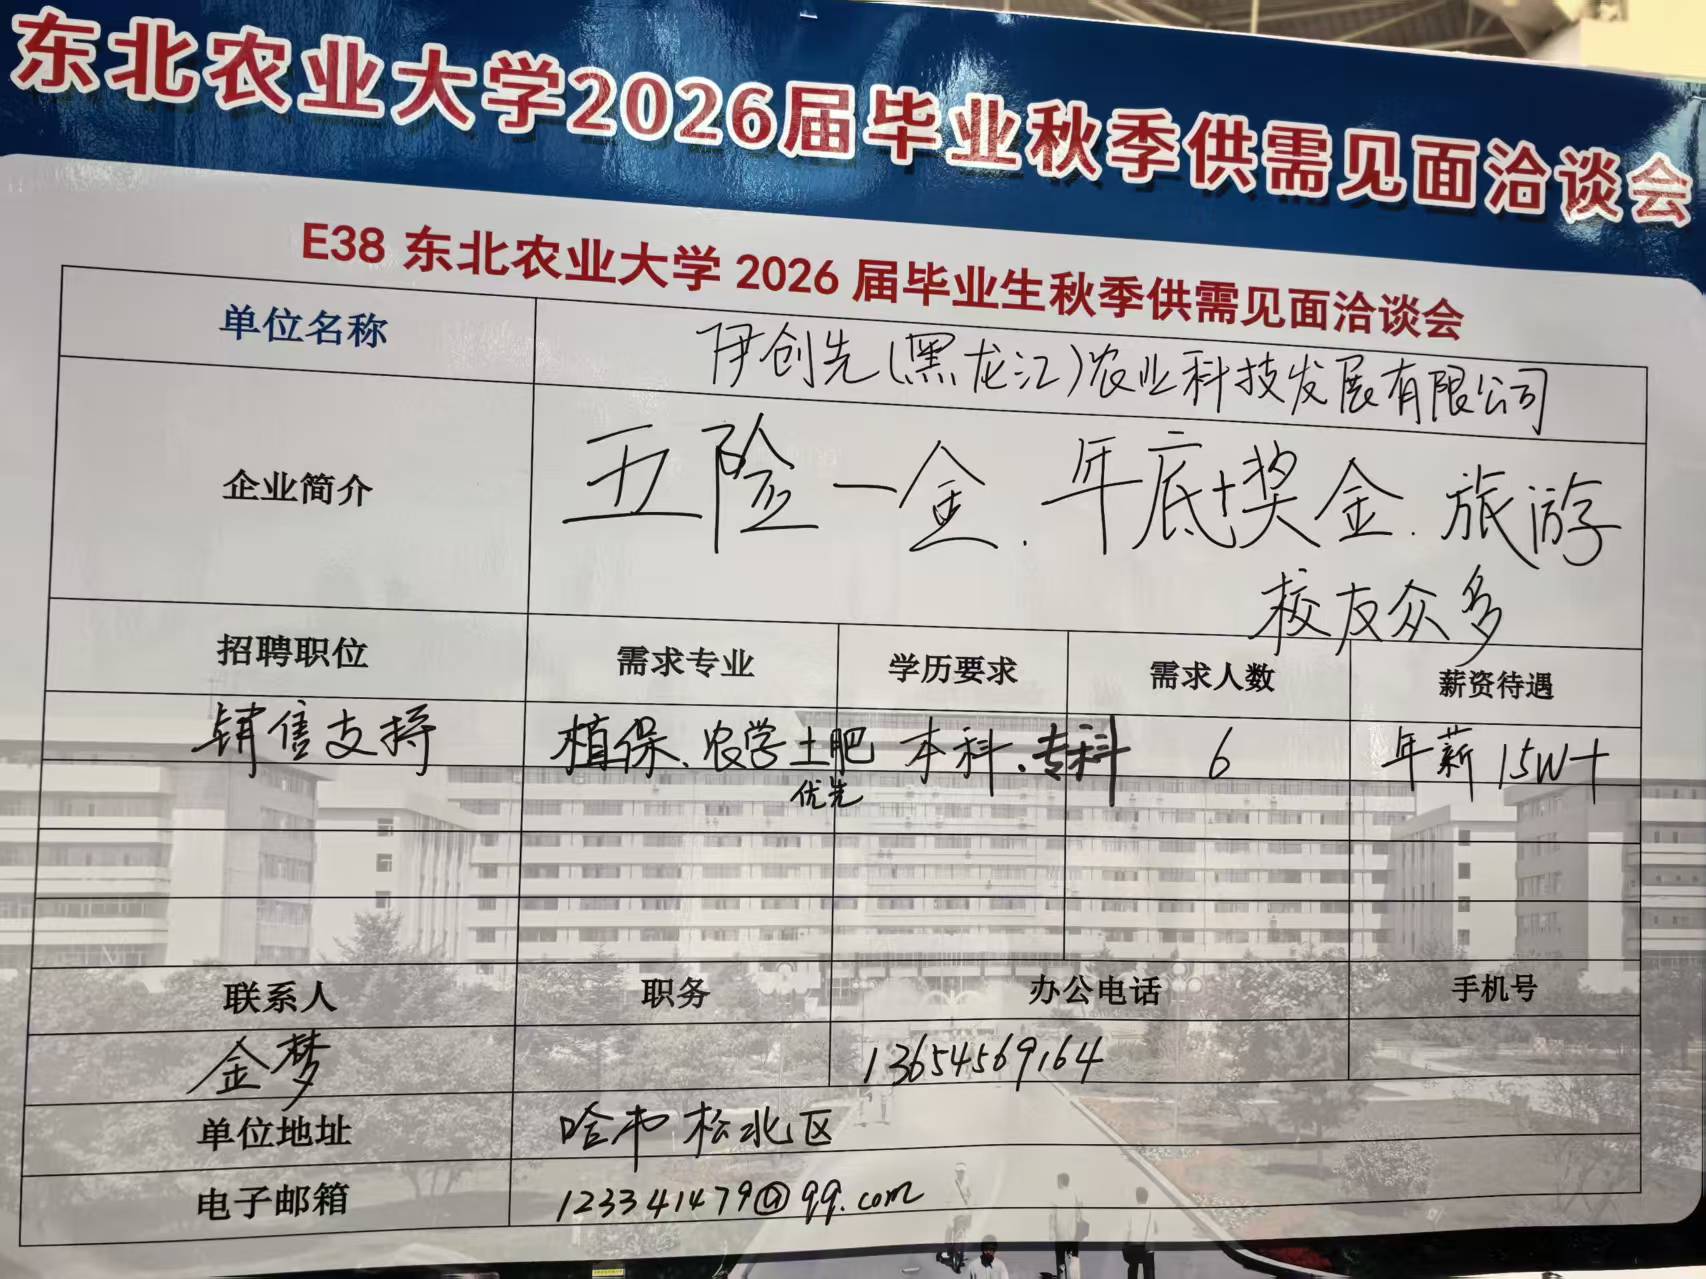 东北农业大学2026届毕业秋季供需见面洽谈会
E38 东北农业大学 2026 届毕业生秋季供需见面洽谈会
单位名称 伊创先(黑龙江)农业科技发展有限公司
企业简介 五险一金、年底+奖金、旅游
校友众多
招聘职位 需求专业 学历要求 需求人数 薪资待遇
销售支持 植保、农学土肥 本科、专科 6 年薪15W+
优先
联系人 职务 办公电话 手机号
金梦 13654569164
单位地址 哈市松北区
电子邮箱 123341479@qq.com